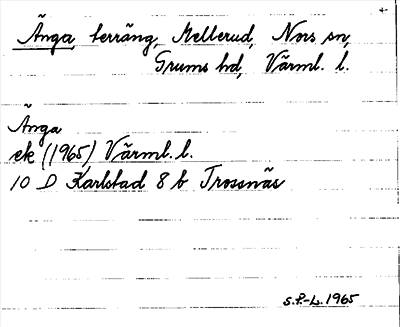 Änga, terräng, Mellerud, Nors sn,
Grums hd, Värml. l.
Änga
ek (1965) Värml. l.
10 D Karlstad 8 b Trossnäs
S.P.-L. 1965